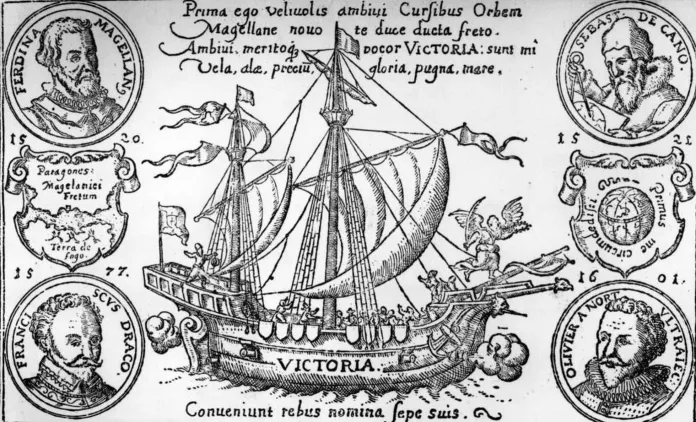 Prima ego velivolis ambivi Cursibus Orbem
Magellane novo te duce ducta freto.
Ambivi, meritoq dvocor VICTORIA: sunt mi
Vela, alæ, preciū, gloria, pugna, mare.
FERDINA MAGELLANꝰ
1520.
SEBAST DE CANO.
1521
Paragones:
Magelanici
Fretum
Terra de
fogo.
Primus me circumdedisti
1577.
FRANCISCVS DRACO
1601.
OLIVIER A NORT VLTRAIEC:
VICTORIA.
Conveniunt rebus nomina sepe suis.